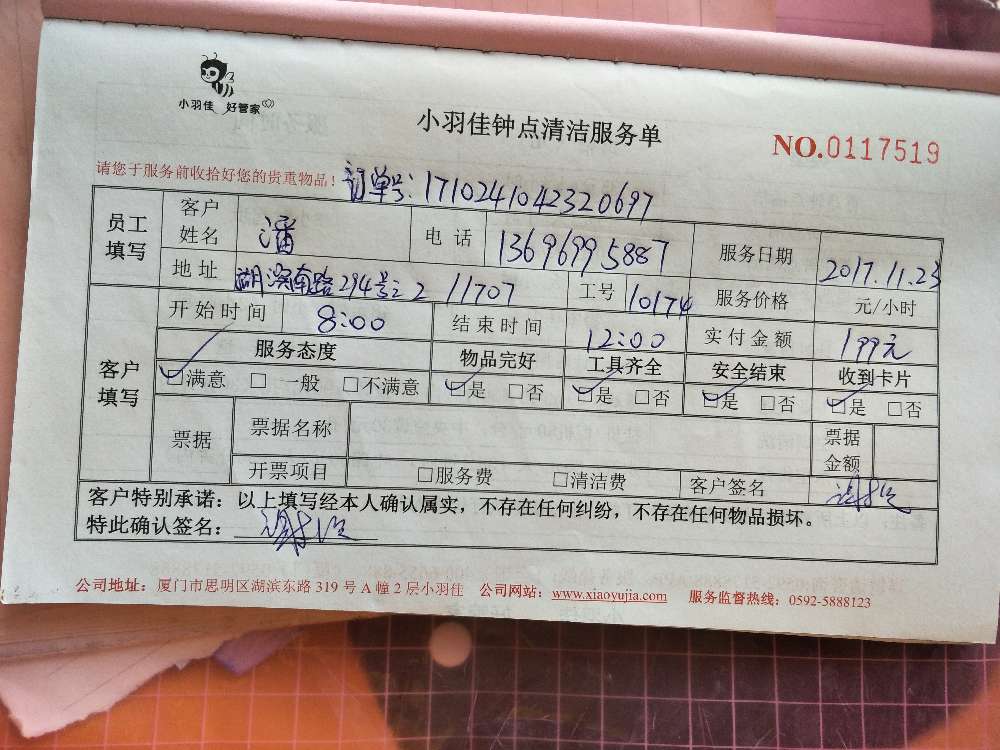 小羽佳 好管家
小羽佳钟点清洁服务单
NO.0117519
请您于服务前收拾好您的贵重物品！
订单号：1710241042320697
员工填写 客户姓名 潘 电话 13696995887 服务日期 2017.11.23
地址 湖滨南路294号之2 11707 工号 10174 服务价格 元/小时
客户填写 开始时间 8:00 结束时间 12:00 实付金额 199元
服务态度 物品完好 工具齐全 安全结束 收到卡片
□满意 □一般 □不满意 □是 □否 □是 □否 □是 □否 □是 □否
票据 票据名称 票据金额
开票项目 □服务费 □清洁费 客户签名
客户特别承诺：以上填写经本人确认属实，不存在任何纠纷，不存在任何物品损坏。
特此确认签名：
公司地址：厦门市思明区湖滨东路319号A幢2层小羽佳 公司网站：www.xiaoyujia.com 服务监督热线：0592-5888123